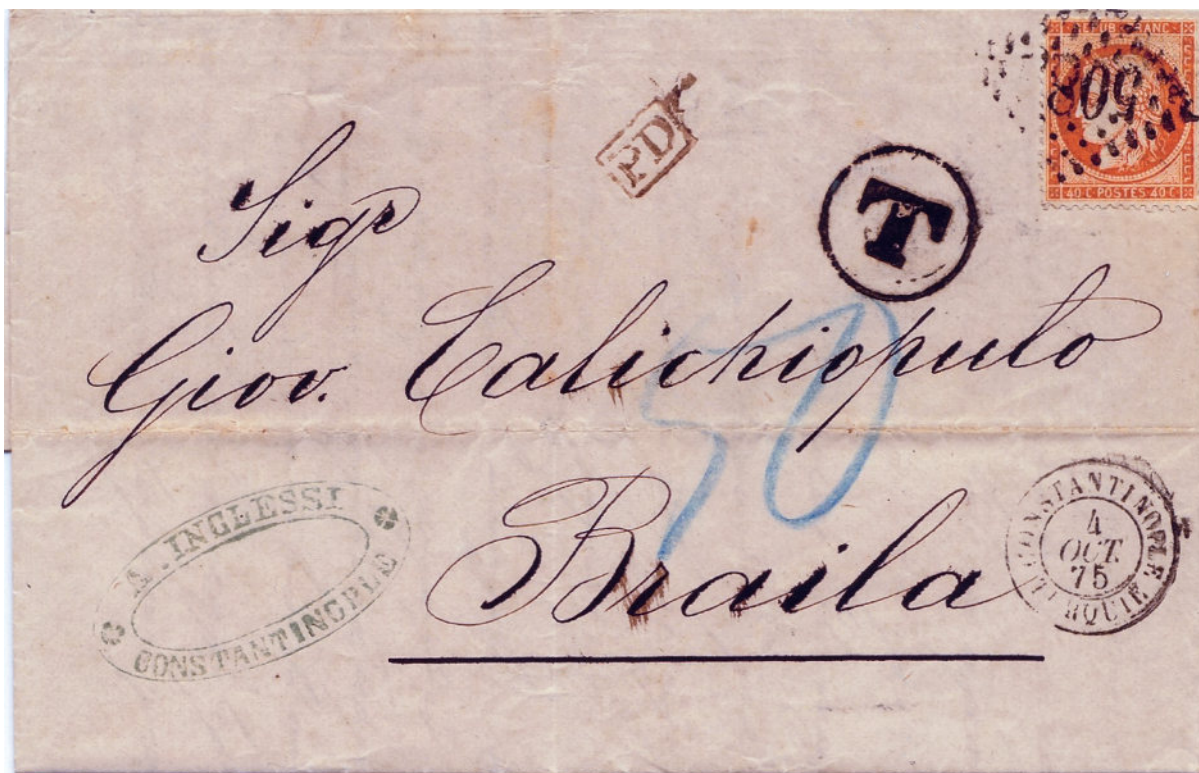 REPUB FRANC
508
40 C POSTES 40 C
PD
T
Sigr
Giov. Calichiopulo
50
Braila
A. INGLESSI
CONSTANTINOPLE
CONSTANTINOPLE
4
OCT.
75
TURQUIE